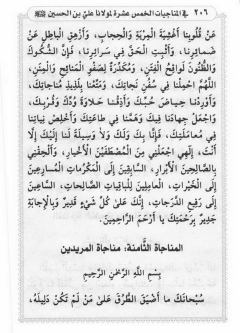 ٢٠٦ في المناجيات الخمس عشرة لمولانا علي بن الحسين
عَنْ قُلُوبِنَا أَغْشِيَةَ الْمِرْيَةِ وَالْحِجَابِ، وَأَزْهِقِ الْبَاطِلَ عَنْ
ضَمَائِرِنَا، وَأَثْبِتِ الْحَقَّ فِي سَرَائِرِنَا، فَإِنَّ الشُّكُوكَ
وَالظُّنُونَ لَوَاقِحُ الْفِتَنِ، وَمُكَدِّرَةٌ لِصَفْوِ الْمَنَائِحِ وَالْمِنَنِ،
اللَّهُمَّ احْمِلْنَا فِي سُفُنِ نَجَاتِكَ، وَمَتِّعْنَا بِلَذِيذِ مُنَاجَاتِكَ،
وَأَوْرِدْنَا حِيَاضَ حُبِّكَ وَأَذِقْنَا حَلَاوَةَ وُدِّكَ وَقُرْبِكَ،
وَاجْعَلْ جِهَادَنَا فِيكَ وَهَمَّنَا فِي طَاعَتِكَ، وَأَخْلِصْ نِيَّاتِنَا
فِي مُعَامَلَتِكَ، فَإِنَّا بِكَ وَلَكَ وَلَا وَسِيلَةَ لَنَا إِلَيْكَ إِلَّا
أَنْتَ، إِلَهِي اجْعَلْنِي مِنَ الْمُصْطَفَيْنَ الْأَخْيَارِ، وَأَلْحِقْنِي
بِالصَّالِحِينَ الْأَبْرَارِ، السَّابِقِينَ إِلَى الْمَكْرُمَاتِ الْمُسَارِعِينَ
إِلَى الْخَيْرَاتِ، الْعَامِلِينَ لِلْبَاقِيَاتِ الصَّالِحَاتِ، السَّاعِينَ
إِلَى رَفِيعِ الدَّرَجَاتِ، إِنَّكَ عَلَى كُلِّ شَيْءٍ قَدِيرٌ وَبِالْإِجَابَةِ
جَدِيرٌ بِرَحْمَتِكَ يَا أَرْحَمَ الرَّاحِمِينَ.
المناجاة الثامنة: مناجاة المريدين
بِسْمِ اللَّهِ الرَّحْمَنِ الرَّحِيمِ
سُبْحَانَكَ مَا أَضْيَقَ الطُّرُقَ عَلَى مَنْ لَمْ تَكُنْ دَلِيلَهُ،